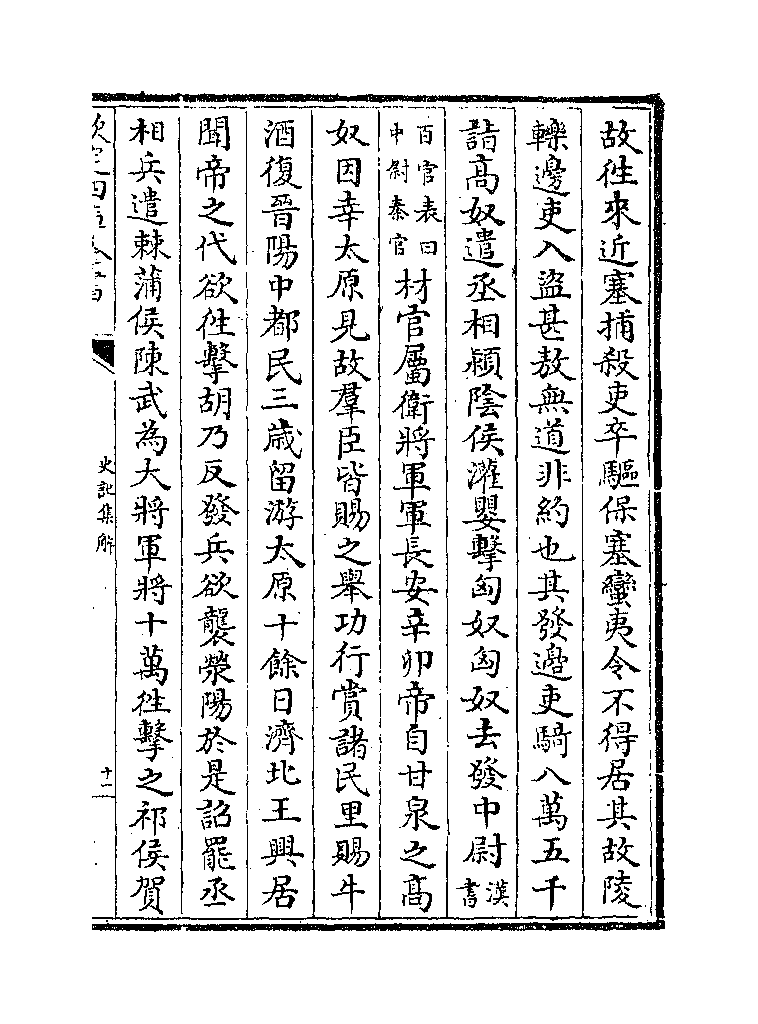 故徃來近塞捕殺吏卒驅保塞蠻夷令不得居其故陵
轢邊吏入盜甚敖無道非約也其發邊吏騎八萬五千
詣髙奴遣丞相潁陰侯灌嬰擊匈奴匈奴去發中尉漢書
百官表曰中尉秦官材官屬衛將軍軍長安辛卯帝自甘泉之髙
奴因幸太原見故羣臣皆賜之舉功行賞諸民里賜牛
酒復晉陽中都民三歳留游太原十餘日濟北王興居
聞帝之代欲徃擊胡乃反發兵欲襲滎陽於是詔罷丞
相兵遣棘蒲侯陳武為大將軍將十萬徃擊之祁侯賀
欽定四庫全書
史記集解
十二